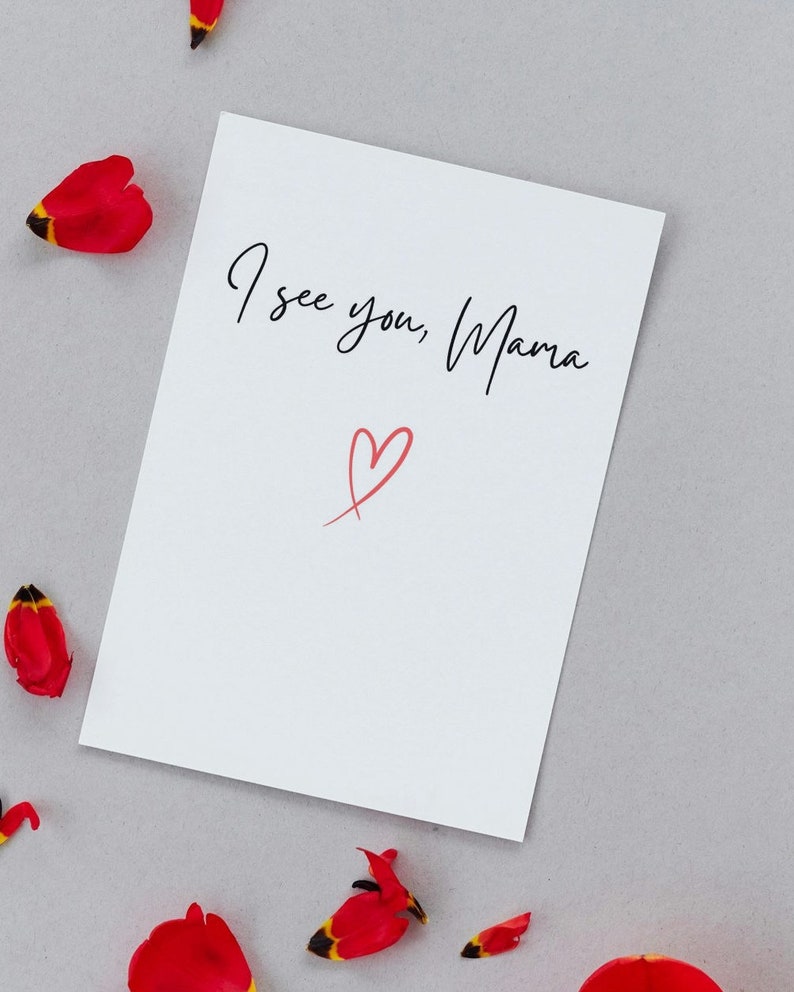 I see you, Mama